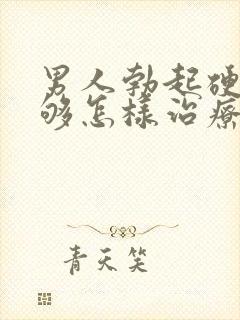 男人勃起硬
够怎样治療
青天笑